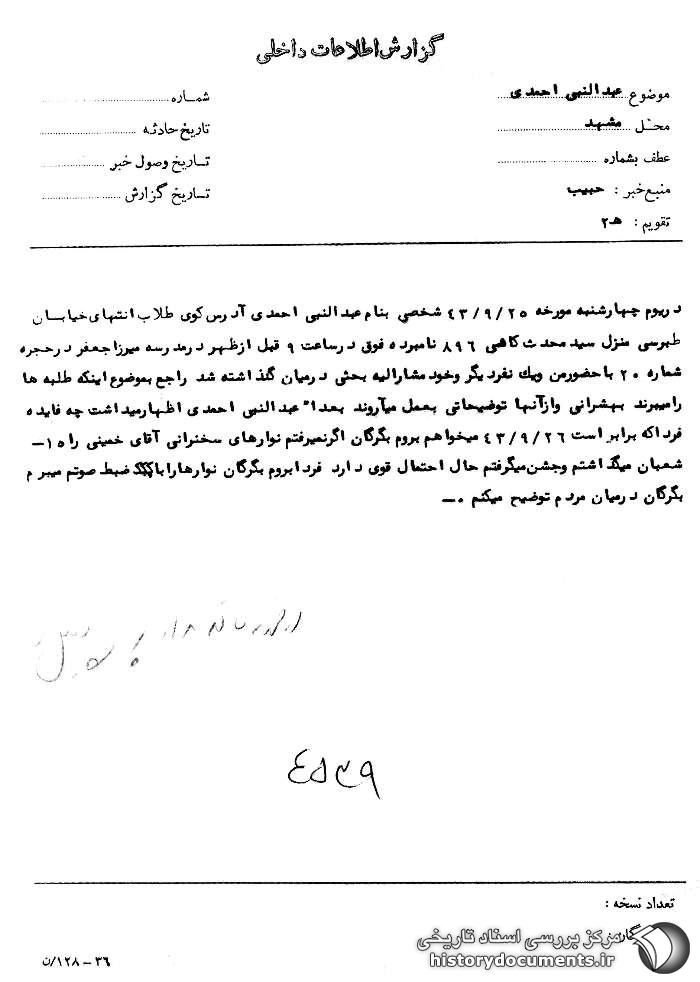 گزارش اطلاعات داخلی
موضوع عبدالنبی احمدی
محل مشهد
عطف بشماره
منبع خبر : حبیب
تقویم : هـ۲
شماره
تاریخ حادثه
تاریخ وصول خبر
تاریخ گزارش
دریوم چهارشنبه مورخه ۴۳/۹/۲۵ شخصی بنام عبدالنبی احمدی آدرس کوی طلاب انتهای خیابان
طبرسی منزل سید محدث کاهی ۸۹۶ نامبرده فوق درساعت ۹ قبل ازظهر درمدرسه میرزاجعفر درحجره
شماره ۲۰ باحضورمن ویك نفردیگر وخود مشارالیه بحثی درمیان گذاشته شد راجع بموضوع اینکه طلبه ها
رامیبرند بهشرانی وازآنها توضیحاتی بعمل میآروند بعدا" عبدالنبی احمدی اظهارمیداشت چه فایده
فرداکه برابر است ۴۳/۹/۲۶ میخواهم بروم بگرگان اگرنمیرفتم نوارهای سخنرانی آقای خمینی را ۱۵ـ
شعبان میگذاشتم وجشن میگرفتم حال احتمال قوی دارد فردابروم بگرگان نوارهارابا ضبط صوتم میبرم
بگرگان درمیان مردم توضیح میکنم ۰ـ
۴۵۳۹
تعداد نسخه :
۳۶ – ۱۲۸/ن
مرکز بررسی اسناد تاریخی
historydocuments.ir